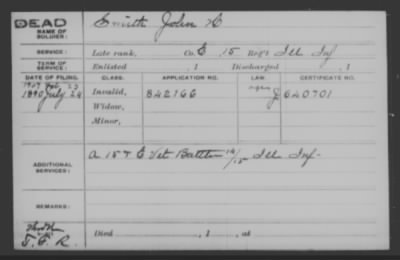 DEAD
NAME OF SOLDIER: Smith John H
SERVICE: Late rank, Co. E, 15 Reg't Ill Inf
TERM OF SERVICE: Enlisted , 1 Discharged , 1
DATE OF FILING. CLASS. APPLICATION NO. LAW. CERTIFICATE NO.
1890 July 24 Invalid, 842166 640701
Widow,
Minor,
ADDITIONAL SERVICES: A 15 & E Vet Battn 14/15 Ill Inf
REMARKS:
Died , 1 , at